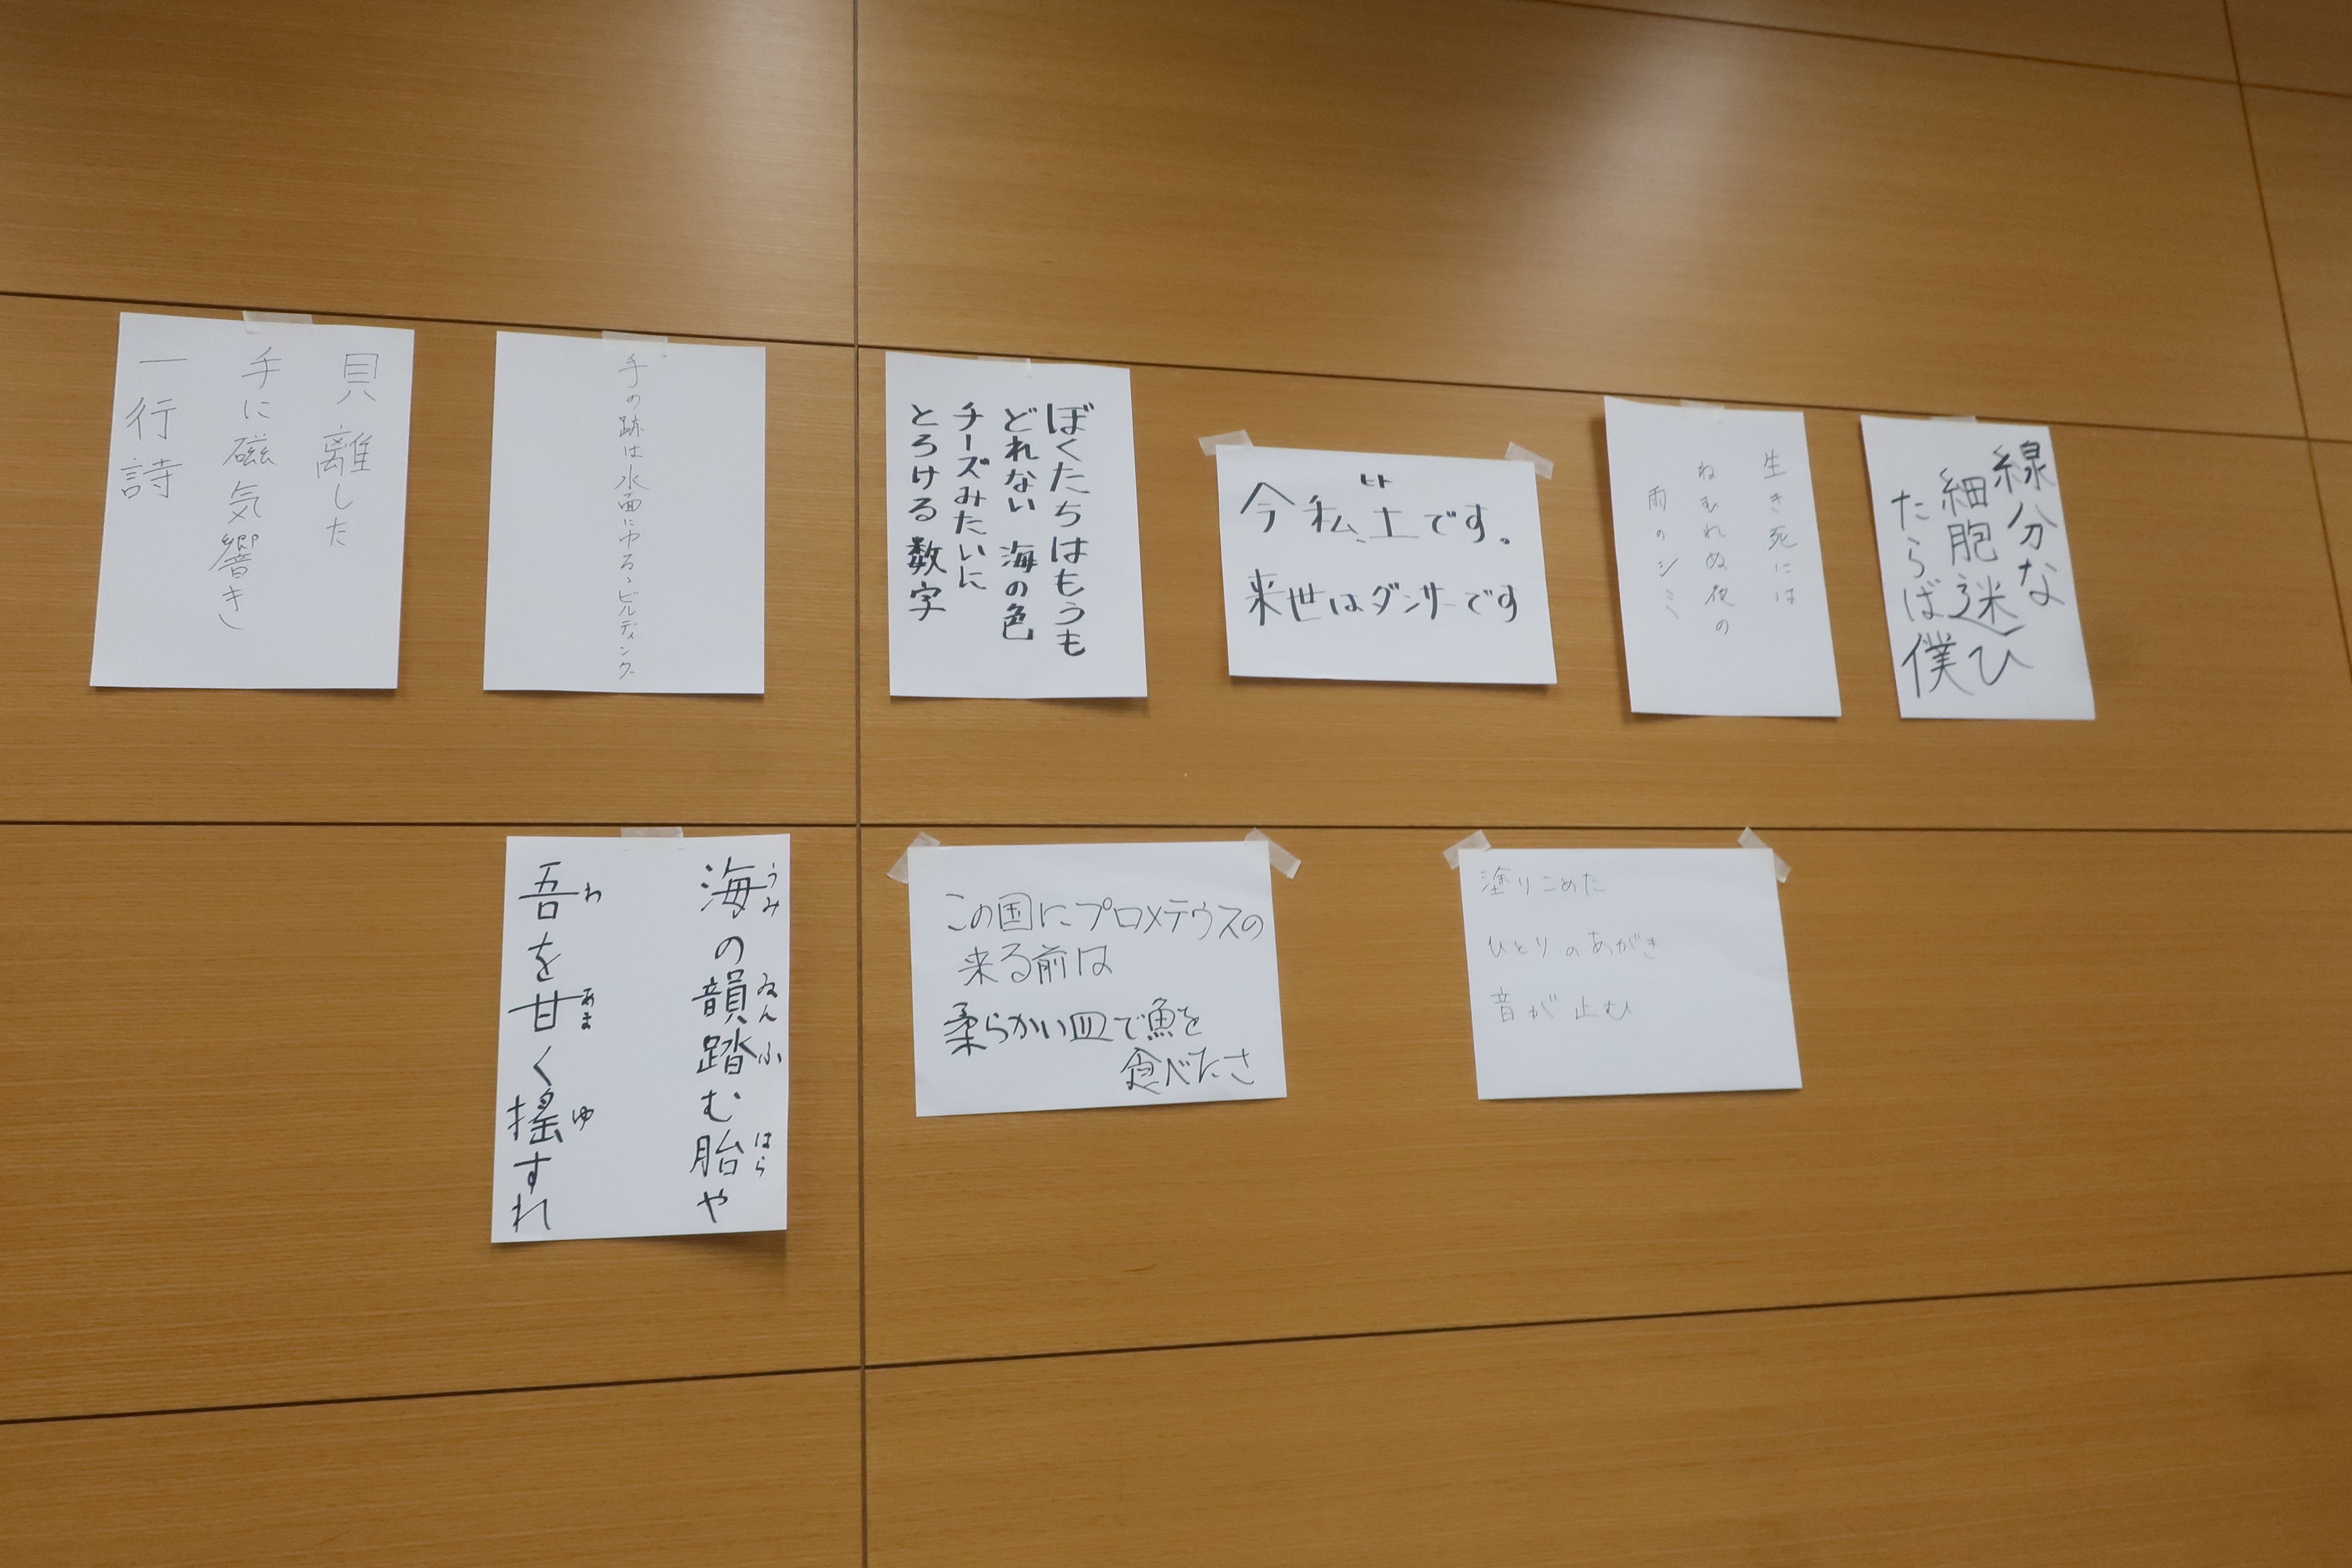 貝離した
手に磁気響き
一行詩
手の跡は水面にゆるゝビルディング
ぼくたちはもうも
どれない 海の色
チーズみたいに
とろける 数字
今私、土です。
来世はダンサーです
生き死には
ねむれぬ夜の
雨のシミ
線分な
細胞迷ひ
たらば僕
海の韻踏む胎や
うみ ゐん ふ はら
吾を甘く揺すれ
わ あま ゆ
この国にプロメテウスの
来る前は
柔らかい皿で魚を
食べたさ
塗りこめた
ひとりのあがき
音が止む